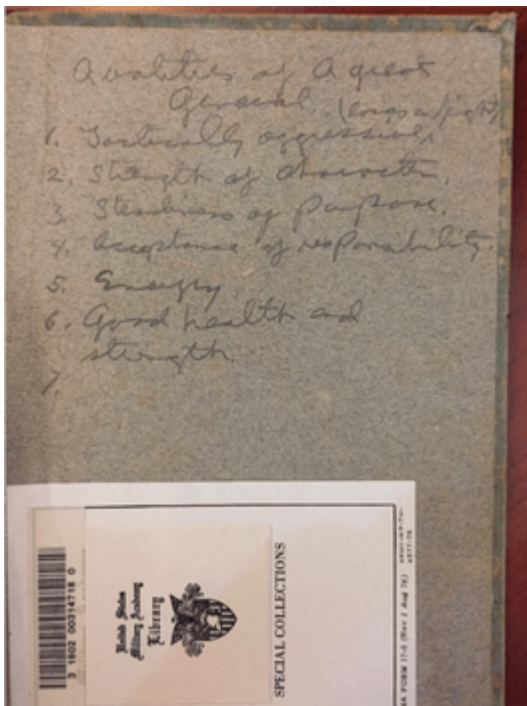 Qualities of A great
General. (loves a fight)
1. Tactically aggressive.
2. Strength of character.
3. Steadiness of purpose.
4. Acceptance of responsibility.
5. Energy.
6. Good health and
strength.
7.
United States
Military Academy
Library
SPECIAL COLLECTIONS
3 1802 00314718 0
MA FORM 17-6 (Rev 2 Aug 76)